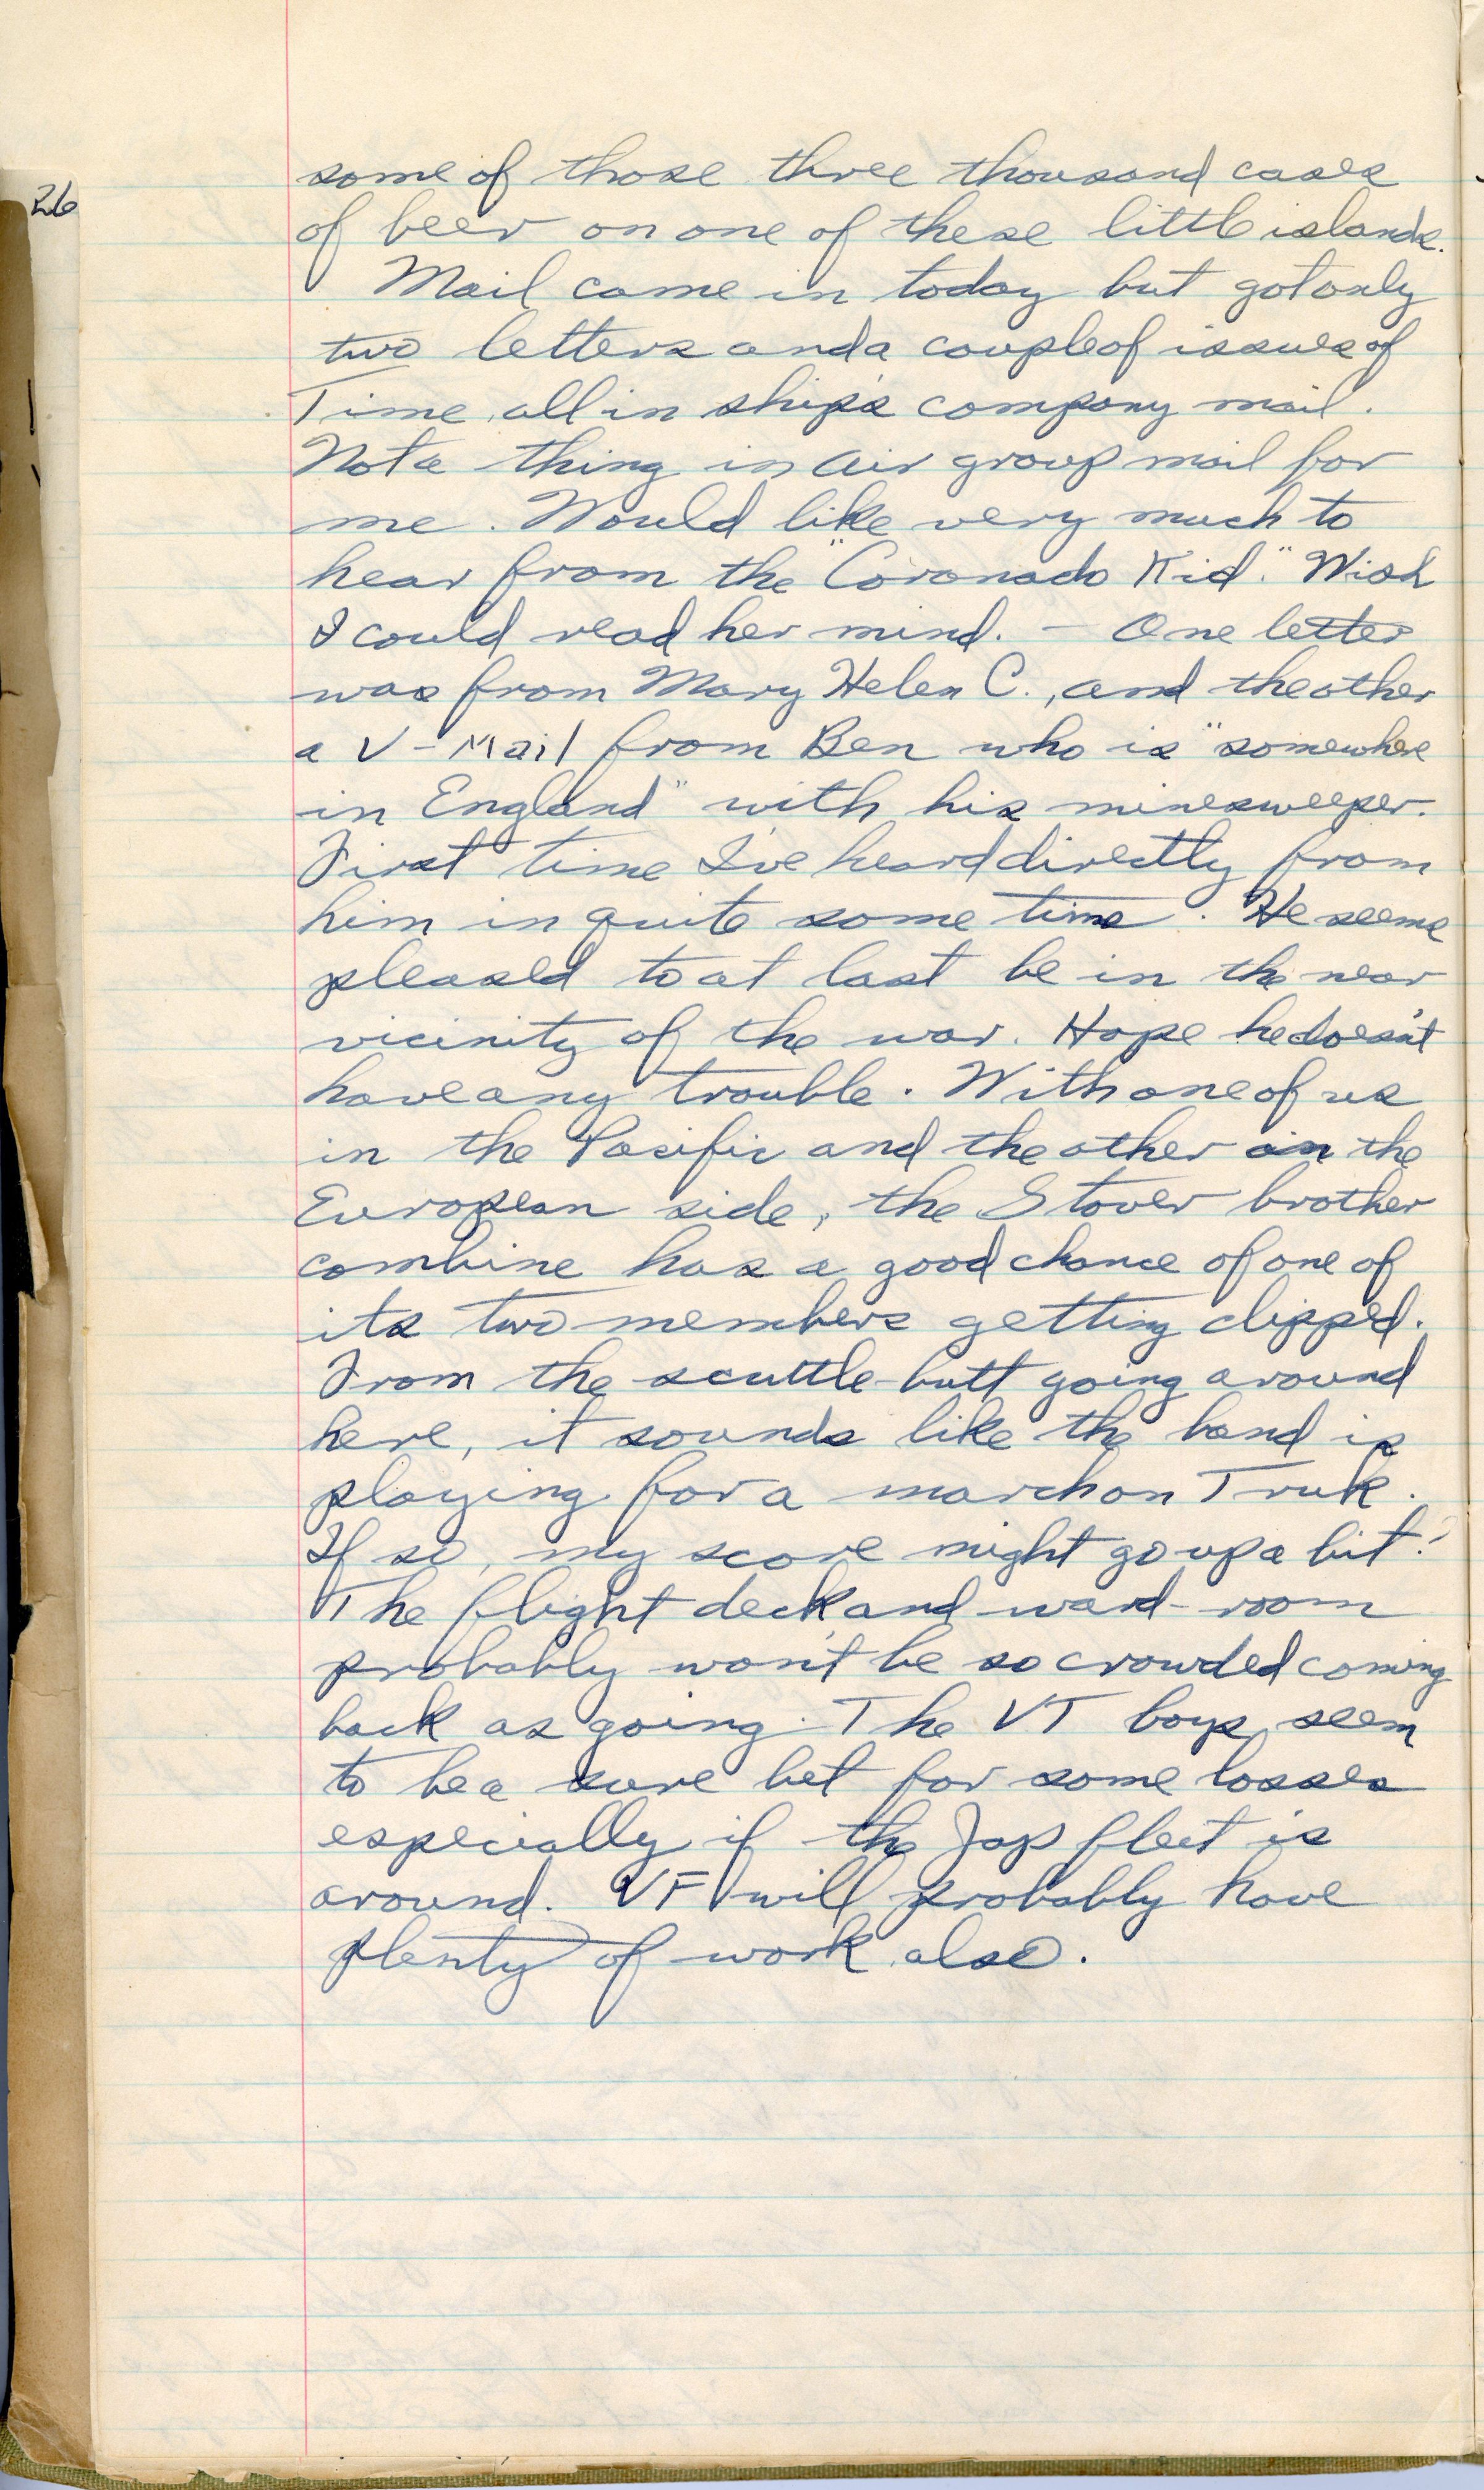 26
some of those three thousand cases
of beer on one of these little islands.
Mail came in today but got only
two letters and a couple of issues of
Time, all in ship's company mail.
Not a thing in air group mail for
me. Would like very much to
hear from the "Coronado Kid." Wish
I could read her mind. - One letter
was from Mary Helen C., and the other
a V-Mail from Ben who is "somewhere
in England" with his minesweeper.
First time I've heard directly from
him in quite some time. He seems
pleased to at last be in the near
vicinity of the war. Hope he doesn't
have any trouble. With one of us
in the Pacific and the other in the
European side, the Stover brother
combine has a good chance of one of
its two members getting clipped.
From the scuttle-butt going around
here, it sounds like the band is
playing for a march on Truk.
If so, my score might go up a bit!
The flight deck and ward-room
probably won't be so crowded coming
back as going. The VT boys seem
to be a sure bet for some losses
especially if the Jap fleet is
around. VF will probably have
plenty of work also.